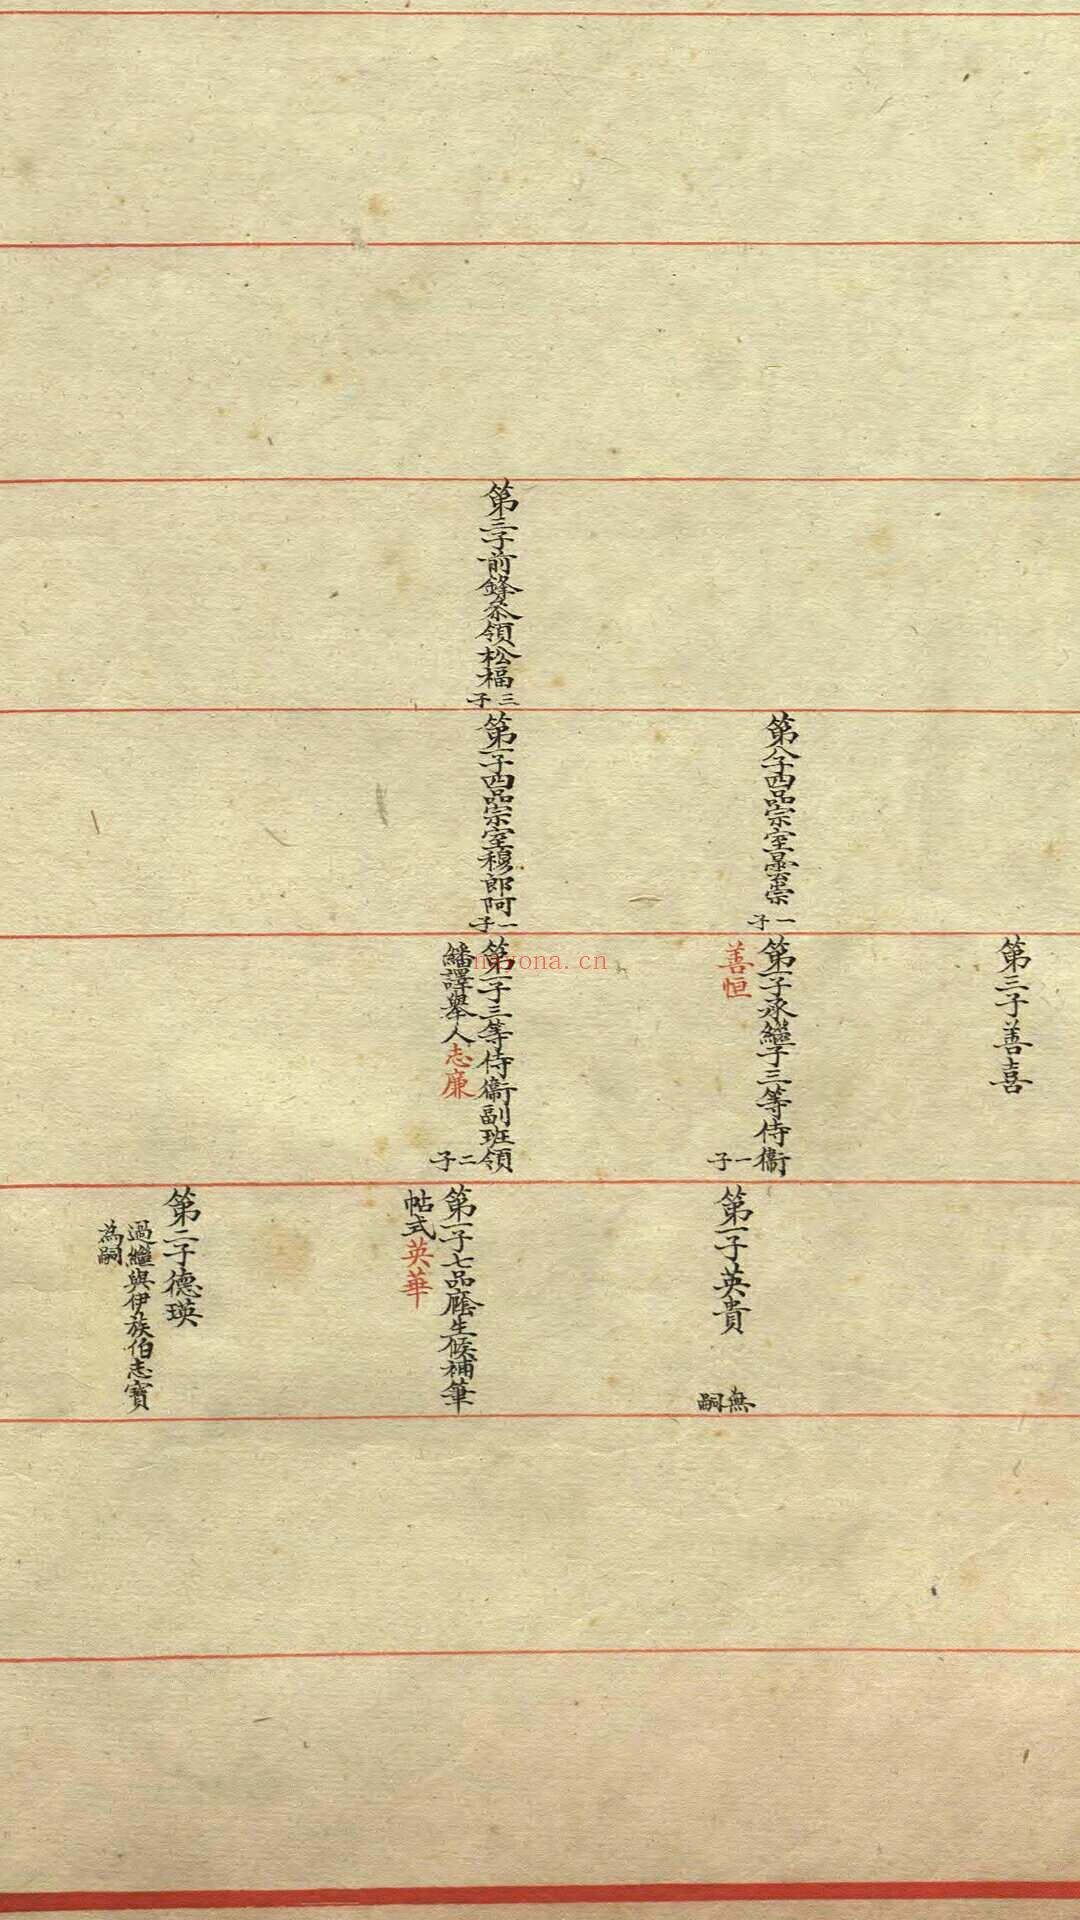 第三子善喜
第八子四品宗室景崇
一子
第一子承繼子三等侍衞
善恒
一子
第一子英貴
無
嗣
第三子前鋒叅領松福
三子
第一子四品宗室穆郎阿
一子
第一子三等侍衞副班領
繙譯舉人志廉
二子
第一子七品廕生候補筆
帖式英華
第二子德瑛
過繼與伊族伯志寶
為嗣
nayona.cn